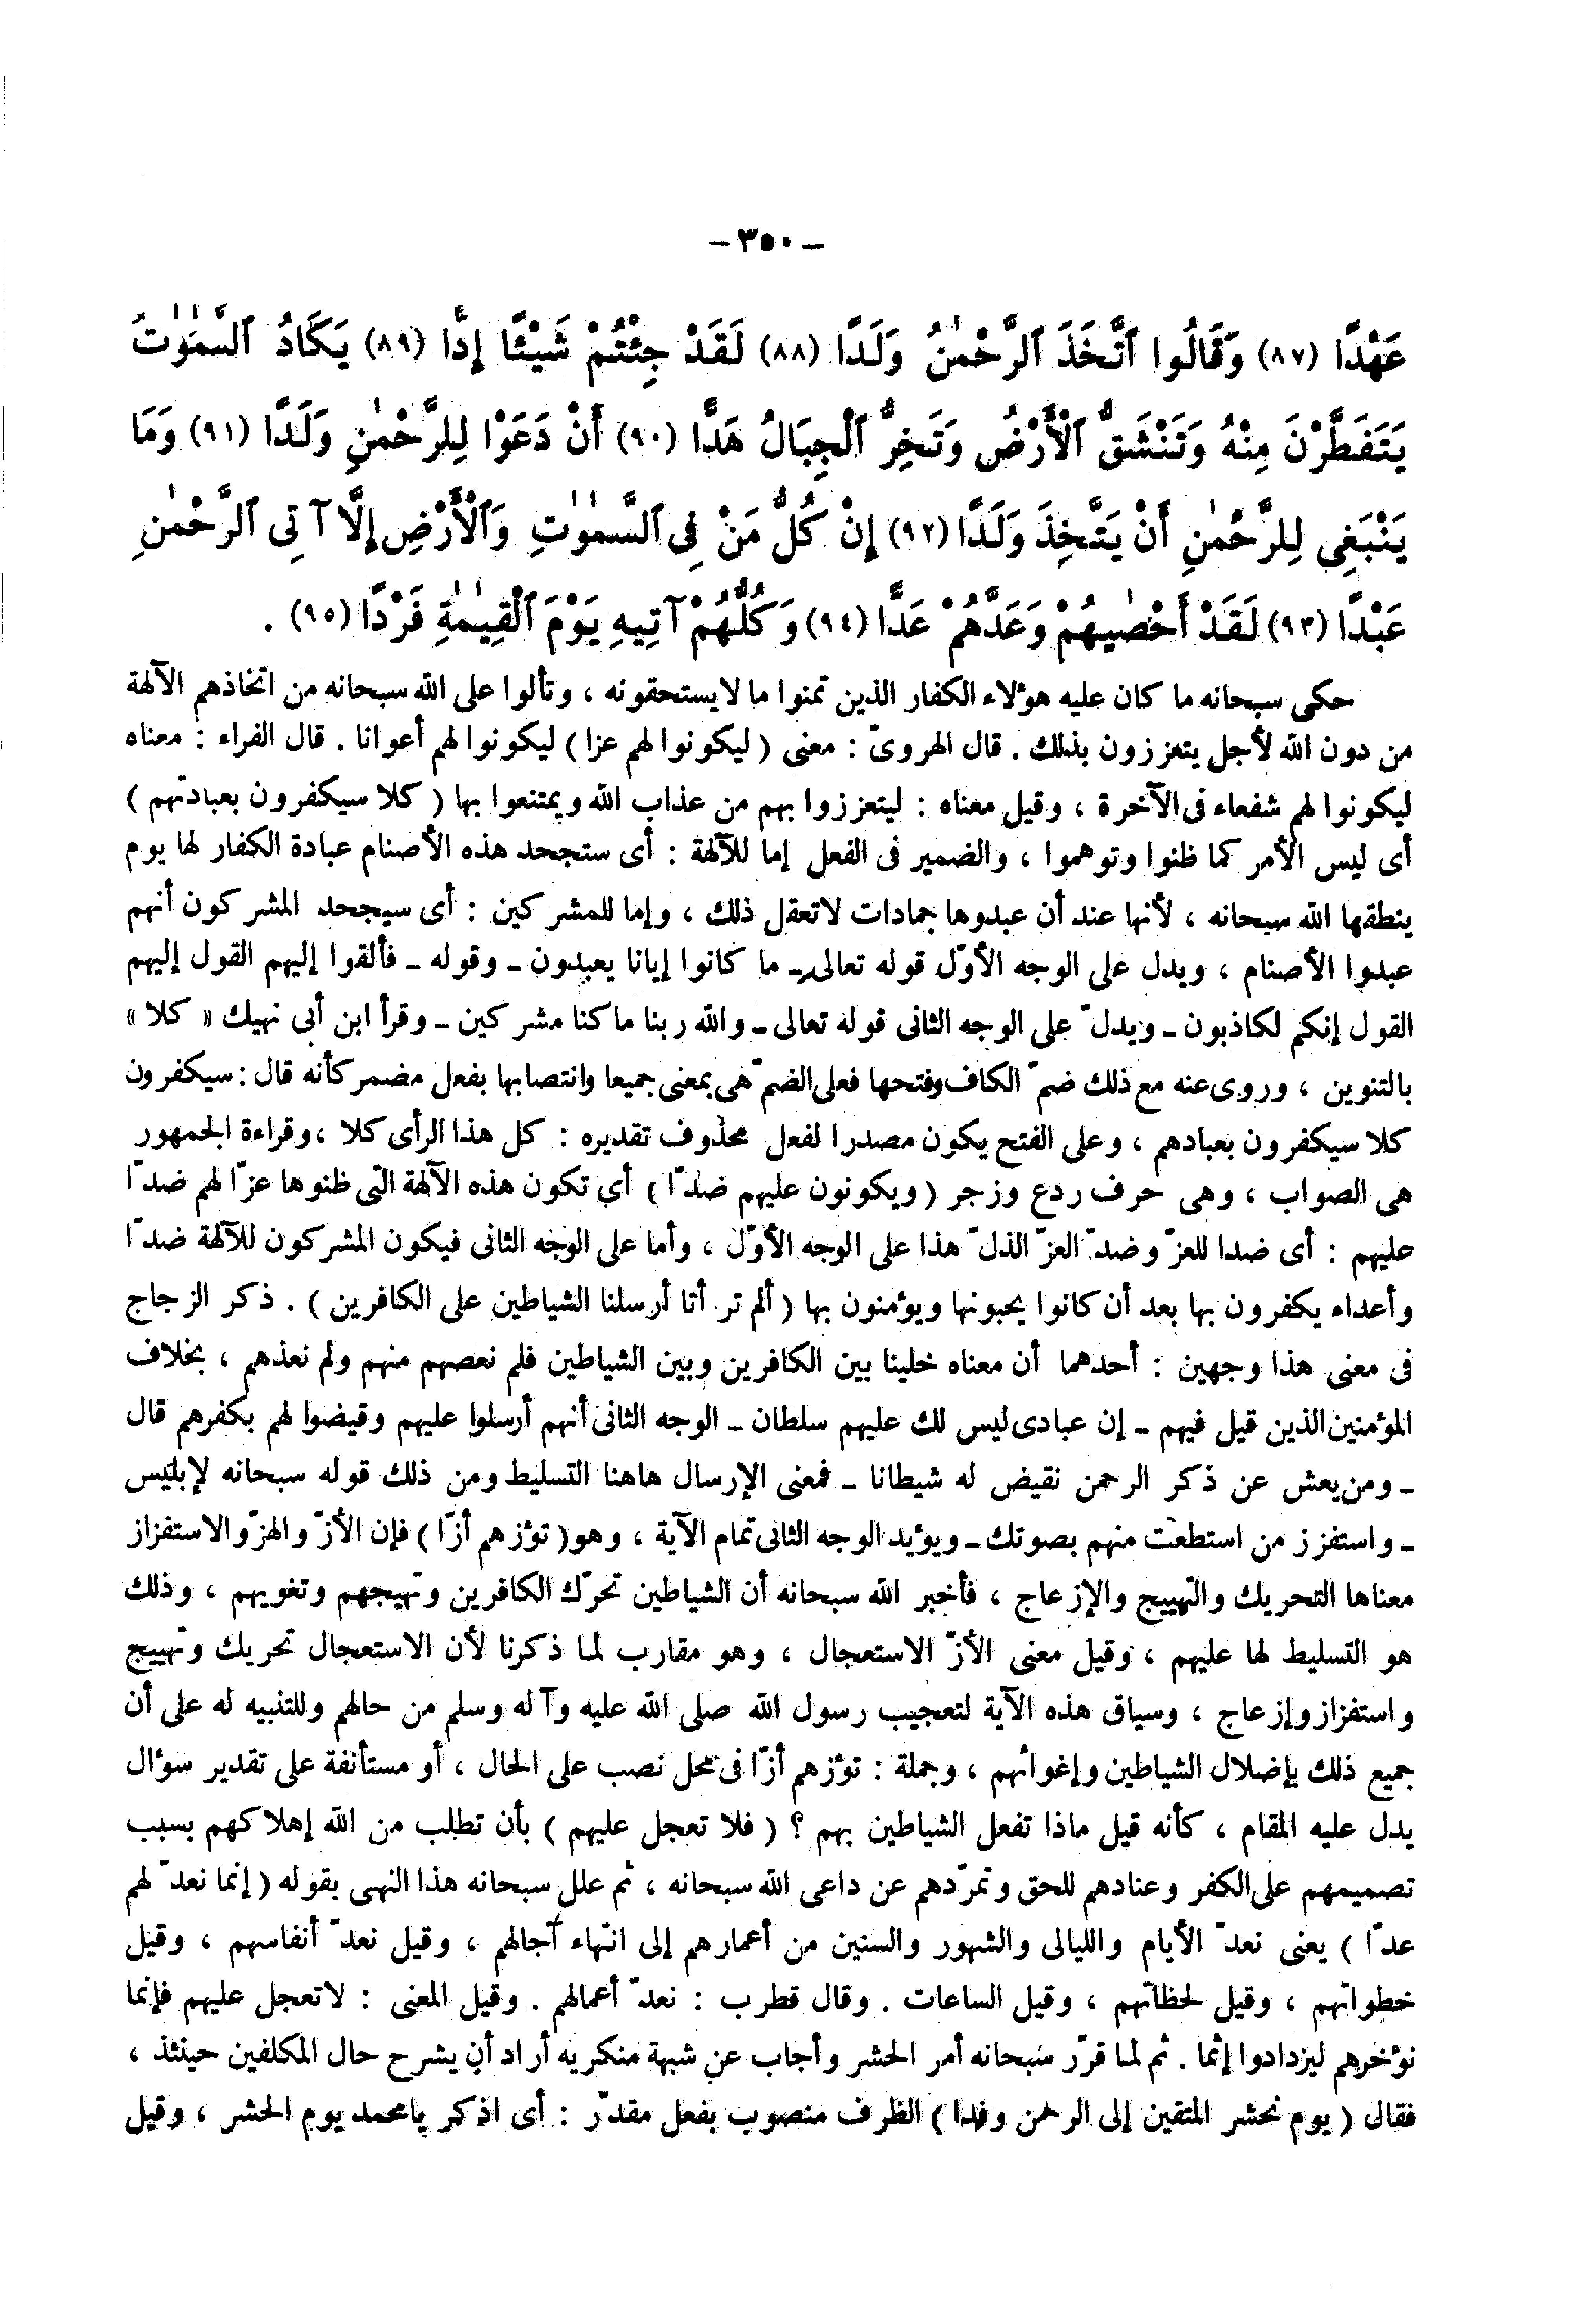 – ٣٥٠ –
عَهْدًا (٨٧) وَقَالُوا ٱتَّخَذَ ٱلرَّحْمٰنُ وَلَدًا (٨٨) لَقَدْ جِئْتُمْ شَيْئًا إِدًّا (٨٩) يَكَادُ ٱلسَّمٰوٰتُ
يَتَفَطَّرْنَ مِنْهُ وَتَنْشَقُّ ٱلْأَرْضُ وَتَخِرُّ ٱلْجِبَالُ هَدًّا (٩٠) أَنْ دَعَوْا لِلرَّحْمٰنِ وَلَدًا (٩١) وَمَا
يَنْبَغِي لِلرَّحْمٰنِ أَنْ يَتَّخِذَ وَلَدًا (٩٢) إِنْ كُلُّ مَنْ فِى ٱلسَّمٰوٰتِ وَٱلْأَرْضِ إِلَّا آتِى ٱلرَّحْمٰنِ
عَبْدًا (٩٣) لَقَدْ أَحْصٰيهُمْ وَعَدَّهُمْ عَدًّا (٩٤) وَكُلُّهُمْ آتِيهِ يَوْمَ ٱلْقِيٰمَةِ فَرْدًا (٩٥) .
حكى سبحانه ما كان عليه هؤلاء الكفار الذين تمنوا ما لايستحقونه ، وتألوا على الله سبحانه من اتخاذهم الآلهة
من دون الله لأجل يتعززون بذلك . قال الهروىّ : معنى ( ليكونوا لهم عزا ) ليكونوا لهم أعوانا . قال الفراء : معناه
ليكونوا لهم شفعاء فى الآخرة ، وقيل معناه : ليتعززوا بهم من عذاب الله ويمتنعوا بها ( كلا سيكفرون بعبادتهم )
أى ليس الأمر كما ظنوا وتوهموا ، والضمير فى الفعل إما للآلهة : أى ستجحد هذه الأصنام عبادة الكفار لها يوم
ينطقها الله سبحانه ، لأنها عند أن عبدوها جمادات لاتعقل ذلك ، وإما للمشركين : أى سيجحد المشركون أنهم
عبدوا الأصنام ، ويدل على الوجه الأوّل قوله تعالى ـ ما كانوا إيانا يعبدون ـ وقوله ـ فألقوا إليهم القول إليهم
القول إنكم لكاذبون ـ ويدلّ على الوجه الثانى قوله تعالى ـ والله ربنا ما كنا مشركين ـ وقرأ ابن أبى نهيك « كلا »
بالتنوين ، وروى عنه مع ذلك ضمّ الكاف وفتحها فعلى الضمّ هى بمعنى جميعا وانتصابها بفعل مضمر كأنه قال : سيكفرون
كلا سيكفرون بعبادهم ، وعلى الفتح يكون مصدرا لفعل محذوف تقديره : كل هذا الرأى كلا ، وقراءة الجمهور
هى الصواب ، وهى حرف ردع وزجر ( ويكونون عليهم ضدّا ) أى تكون هذه الآلهة التى ظنوها عزّا لهم ضدّا
عليهم : أى ضدا للعزّ وضدّ العزّ الذلّ هذا على الوجه الأوّل ، وأما على الوجه الثانى فيكون المشركون للآلهة ضدّا
وأعداء يكفرون بها بعد أن كانوا يحبونها ويؤمنون بها ( ألم تر أنا أرسلنا الشياطين على الكافرين ) . ذكر الزجاج
فى معنى هذا وجهين : أحدهما أن معناه خلينا بين الكافرين وبين الشياطين فلم نعصهم منهم ولم نعذهم ، بخلاف
المؤمنين الذين قيل فيهم ـ إن عبادى ليس لك عليهم سلطان ـ الوجه الثانى أنهم أرسلوا عليهم وقيضوا لهم بكفرهم قال
ـ ومن يعش عن ذكر الرحمن نقيض له شيطانا ـ فمعنى الإرسال هاهنا التسليط ومن ذلك قوله سبحانه لإبليس
ـ واستفزز من استطعت منهم بصوتك ـ ويؤيد الوجه الثانى تمام الآية ، وهو ( تؤزهم أزّا ) فإن الأزّ والهزّ والاستفزاز
معناها التحريك والتهييج والإزعاج ، فأخبر الله سبحانه أن الشياطين تحرّك الكافرين وتهيجهم وتغويهم ، وذلك
هو التسليط لها عليهم ، وقيل معنى الأزّ الاستعجال ، وهو مقارب لما ذكرنا لأن الاستعجال تحريك وتهييج
واستفزاز وإزعاج ، وسياق هذه الآية لتعجيب رسول الله صلى الله عليه وآله وسلم من حالهم وللتنبيه له على أن
جميع ذلك بإضلال الشياطين وإغوائهم ، وجملة : تؤزهم أزّا فى محل نصب على الحال ، أو مستأنفة على تقدير سؤال
يدل عليه المقام ، كأنه قيل ماذا تفعل الشياطين بهم ؟ ( فلا تعجل عليهم ) بأن تطلب من الله إهلاكهم بسبب
تصميمهم على الكفر وعنادهم للحق وتمرّدهم عن داعى الله سبحانه ، ثم علل سبحانه هذا النهى بقوله ( إنما نعدّ لهم
عدّا ) يعنى نعدّ الأيام والليالى والشهور والسنين من أعمارهم إلى انتهاء آجالهم ، وقيل نعدّ أنفاسهم ، وقيل
خطواتهم ، وقيل لحظاتهم ، وقيل الساعات . وقال قطرب : نعدّ أعمالهم . وقيل المعنى : لاتعجل عليهم فإنما
نؤخرهم ليزدادوا إثما . ثم لما قرّر سبحانه أمر الحشر وأجاب عن شبهة منكريه أراد أن يشرح حال المكلفين حينئذ ،
فقال ( يوم نحشر المتقين إلى الرحمن وفدا ) الظرف منصوب بفعل مقدّر : أى اذكر يامحمد يوم الحشر ، وقيل